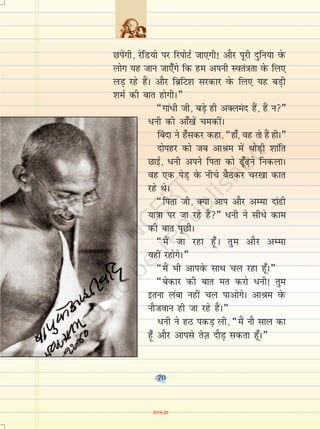 छपेंगी, रेडियो पर रिपोर्ट जाएगी! और पूरी दुनिया के
लोग यह जान जाएँगे कि हम अपनी स्वतंत्रता के लिए
लड़ रहे हैं। और ब्रिटिश सरकार के लिए यह बड़ी
शर्म की बात होगी।”
“गांधी जी, बड़े ही अक्लमंद हैं, हैं न?”
धनी की आँखें चमकीं।
बिंदा ने हँसकर कहा, “हाँ, वह तो हैं ही।”
दोपहर को जब आश्रम में थोड़ी शांति
छाई, धनी अपने पिता को ढूँढ़ने निकला।
वह एक पेड़ के नीचे बैठकर चरखा कात
रहे थे।
“पिता जी, क्या आप और अम्मा दांडी
यात्रा पर जा रहे हैं?” धनी ने सीधे काम
की बात पूछी।
“मैं जा रहा हूँ। तुम और अम्मा
यहीं रहोगे।”
“मैं भी आपके साथ चल रहा हूँ।”
“बेकार की बात मत करो धनी! तुम
इतना लंबा नहीं चल पाओगे। आश्रम के
नौजवान ही जा रहे हैं।”
धनी ने हठ पकड़ ली, “मैं नौ साल का
हूँ और आपसे तेज़ दौड़ सकता हूँ।”
70
2019-20